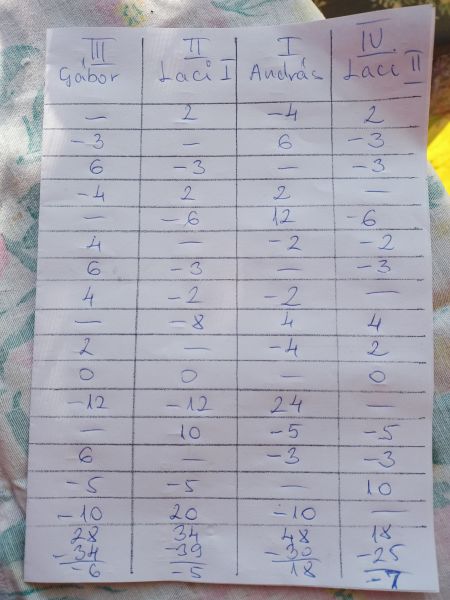 III II I IV
Gábor Laci I András Laci II
— 2 -4 2
-3 — 6 -3
6 -3 — -3
-4 2 2 —
— -6 12 -6
4 — -2 -2
6 -3 — -3
4 -2 -2 —
— -8 4 4
2 — -4 2
0 0 — 0
-12 -12 24 —
— 10 -5 -5
6 — -3 -3
-5 -5 — 10
-10 20 -10 —
28 34 48 18
-34 -39 -30 -25
-6 -5 18 -7